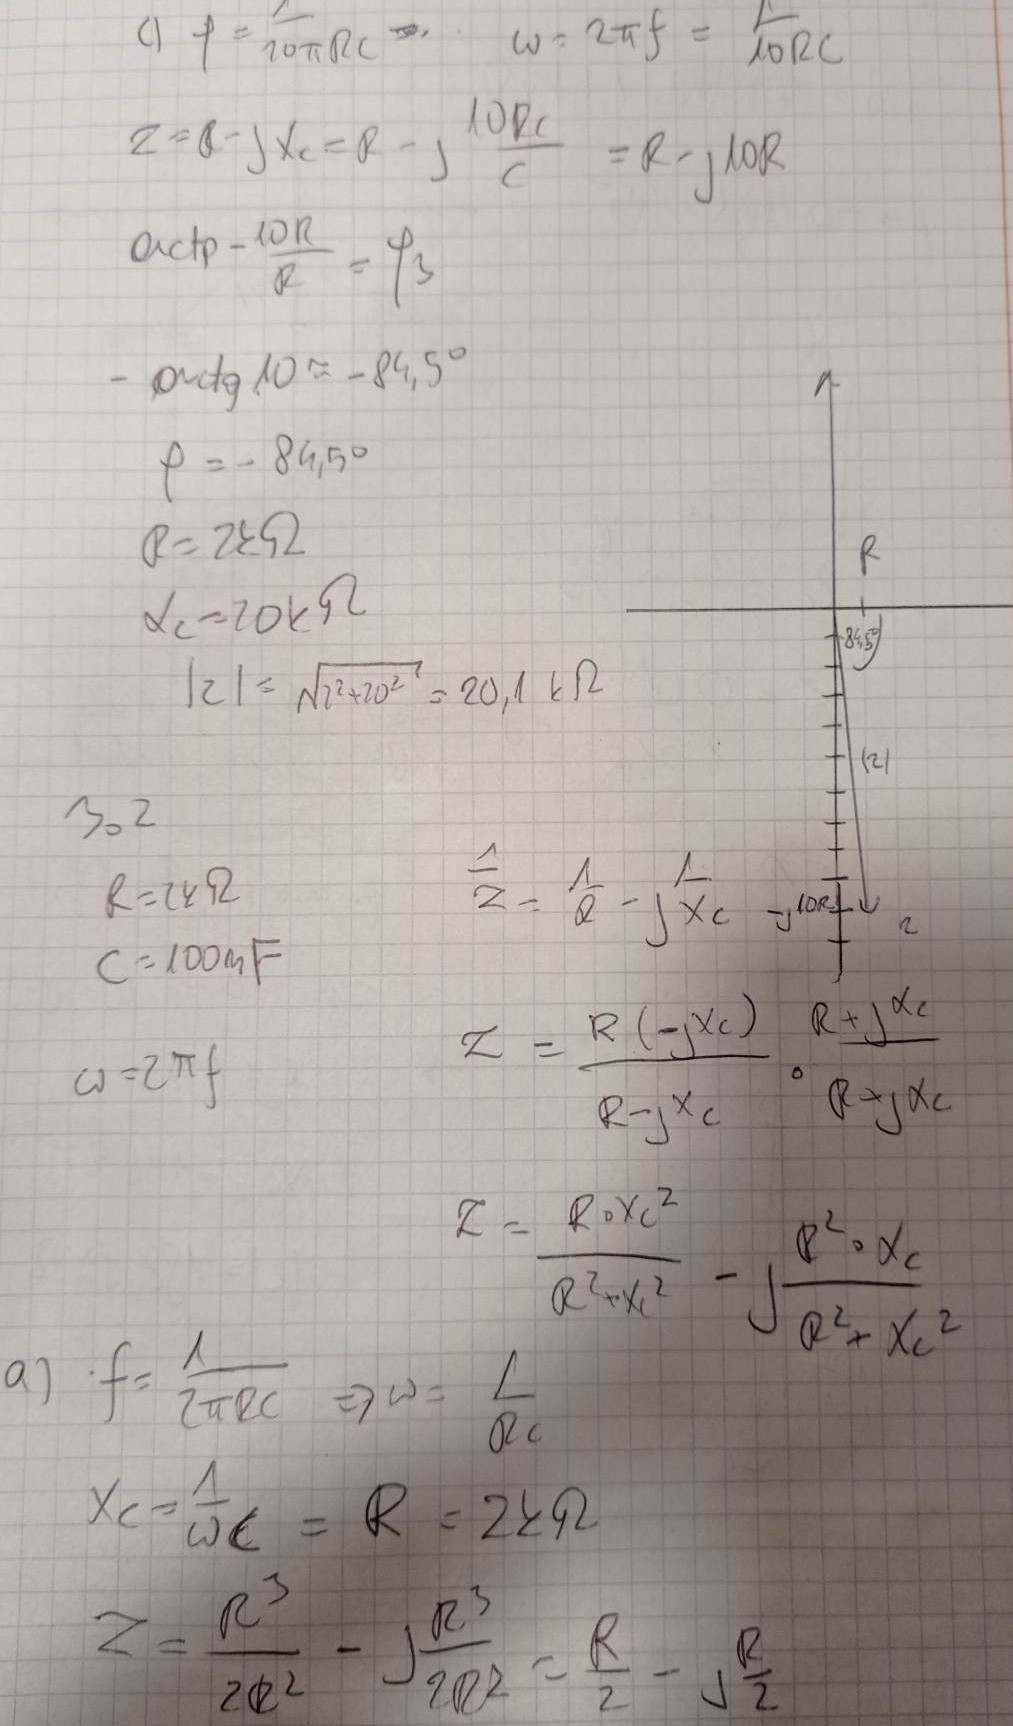 c) f = 1/20πRC ω = 2πf = 1/10RC
Z = R - jXc = R - j 10RC/C = R - j10R
arctg -10R/R = φ3
- arctg 10 ≈ -84,5°
φ = -84,5°
R = 2kΩ
Xc = 20kΩ
|Z| = √(2²+20²) = 20,1 kΩ
R
84,5°
|Z|
-j10R
Z
3.2
R = 2kΩ
C = 100nF
1/Z = 1/R - j 1/Xc
ω = 2πf
Z = R(-jXc)/(R-jXc) · (R+jXc)/(R+jXc)
Z = R·Xc²/(R²+Xc²) - j R²·Xc/(R²+Xc²)
a) f = 1/2πRC => ω = 1/RC
Xc = 1/ωC = R = 2kΩ
Z = R³/2R² - j R³/2R² = R/2 - j R/2